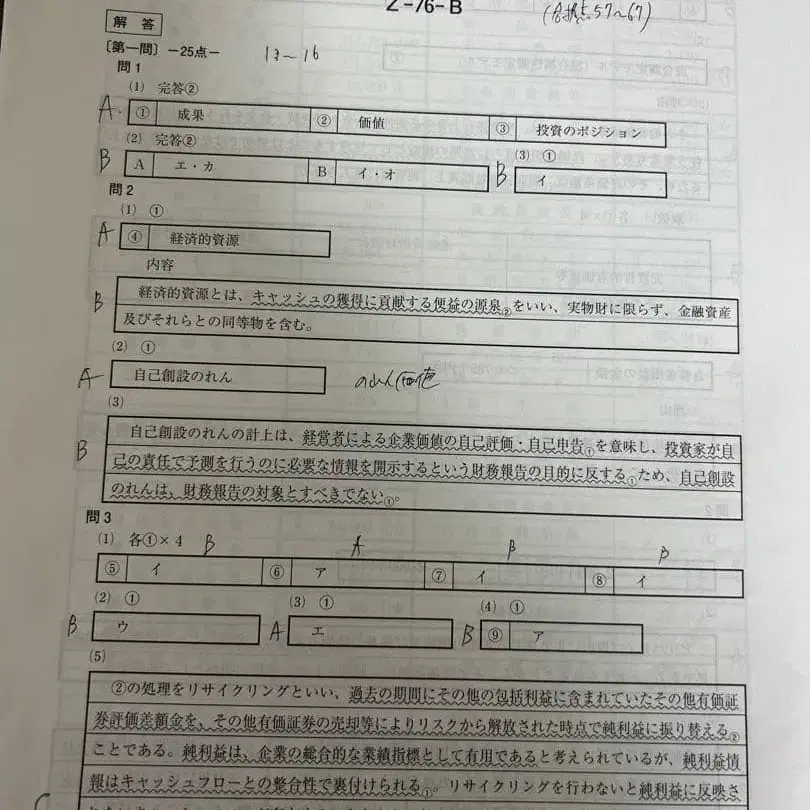 Z-76-B
(合格点57～67)
解 答
〔第一問〕 －25点－ 13～16
問1
(1) 完答②
A ① 成果 ② 価値 ③ 投資のポジション
(2) 完答② (3) ①
B A エ・カ B イ・オ B イ
問2
(1) ①
A ④ 経済的資源
内容
B 経済的資源とは、キャッシュの獲得に貢献する便益の源泉②をいい、実物財に限らず、金融資産
及びそれらとの同等物を含む。
(2) ①
A 自己創設のれん のれん価値
(3)
B 自己創設のれんの計上は、経営者による企業価値の自己評価・自己申告①を意味し、投資家が自
己の責任で予測を行うのに必要な情報を開示するという財務報告の目的に反する①ため、自己創設
のれんは、財務報告の対象とすべきでない①。
問3
(1) 各①×4 B A B B
⑤ イ ⑥ ア ⑦ イ ⑧ イ
(2) ① (3) ① (4) ①
B ウ A エ B ⑨ ア
(5)
②の処理をリサイクリングといい、過去の期間にその他の包括利益に含まれていたその他有価証
券評価差額金を、その他有価証券の売却等によりリスクから解放された時点で純利益に振り替える②
ことである。純利益は、企業の総合的な業績指標として有用であると考えられているが、純利益情
報はキャッシュフローとの整合性で裏付けられる①。リサイクリングを行わないと純利益に反映さ